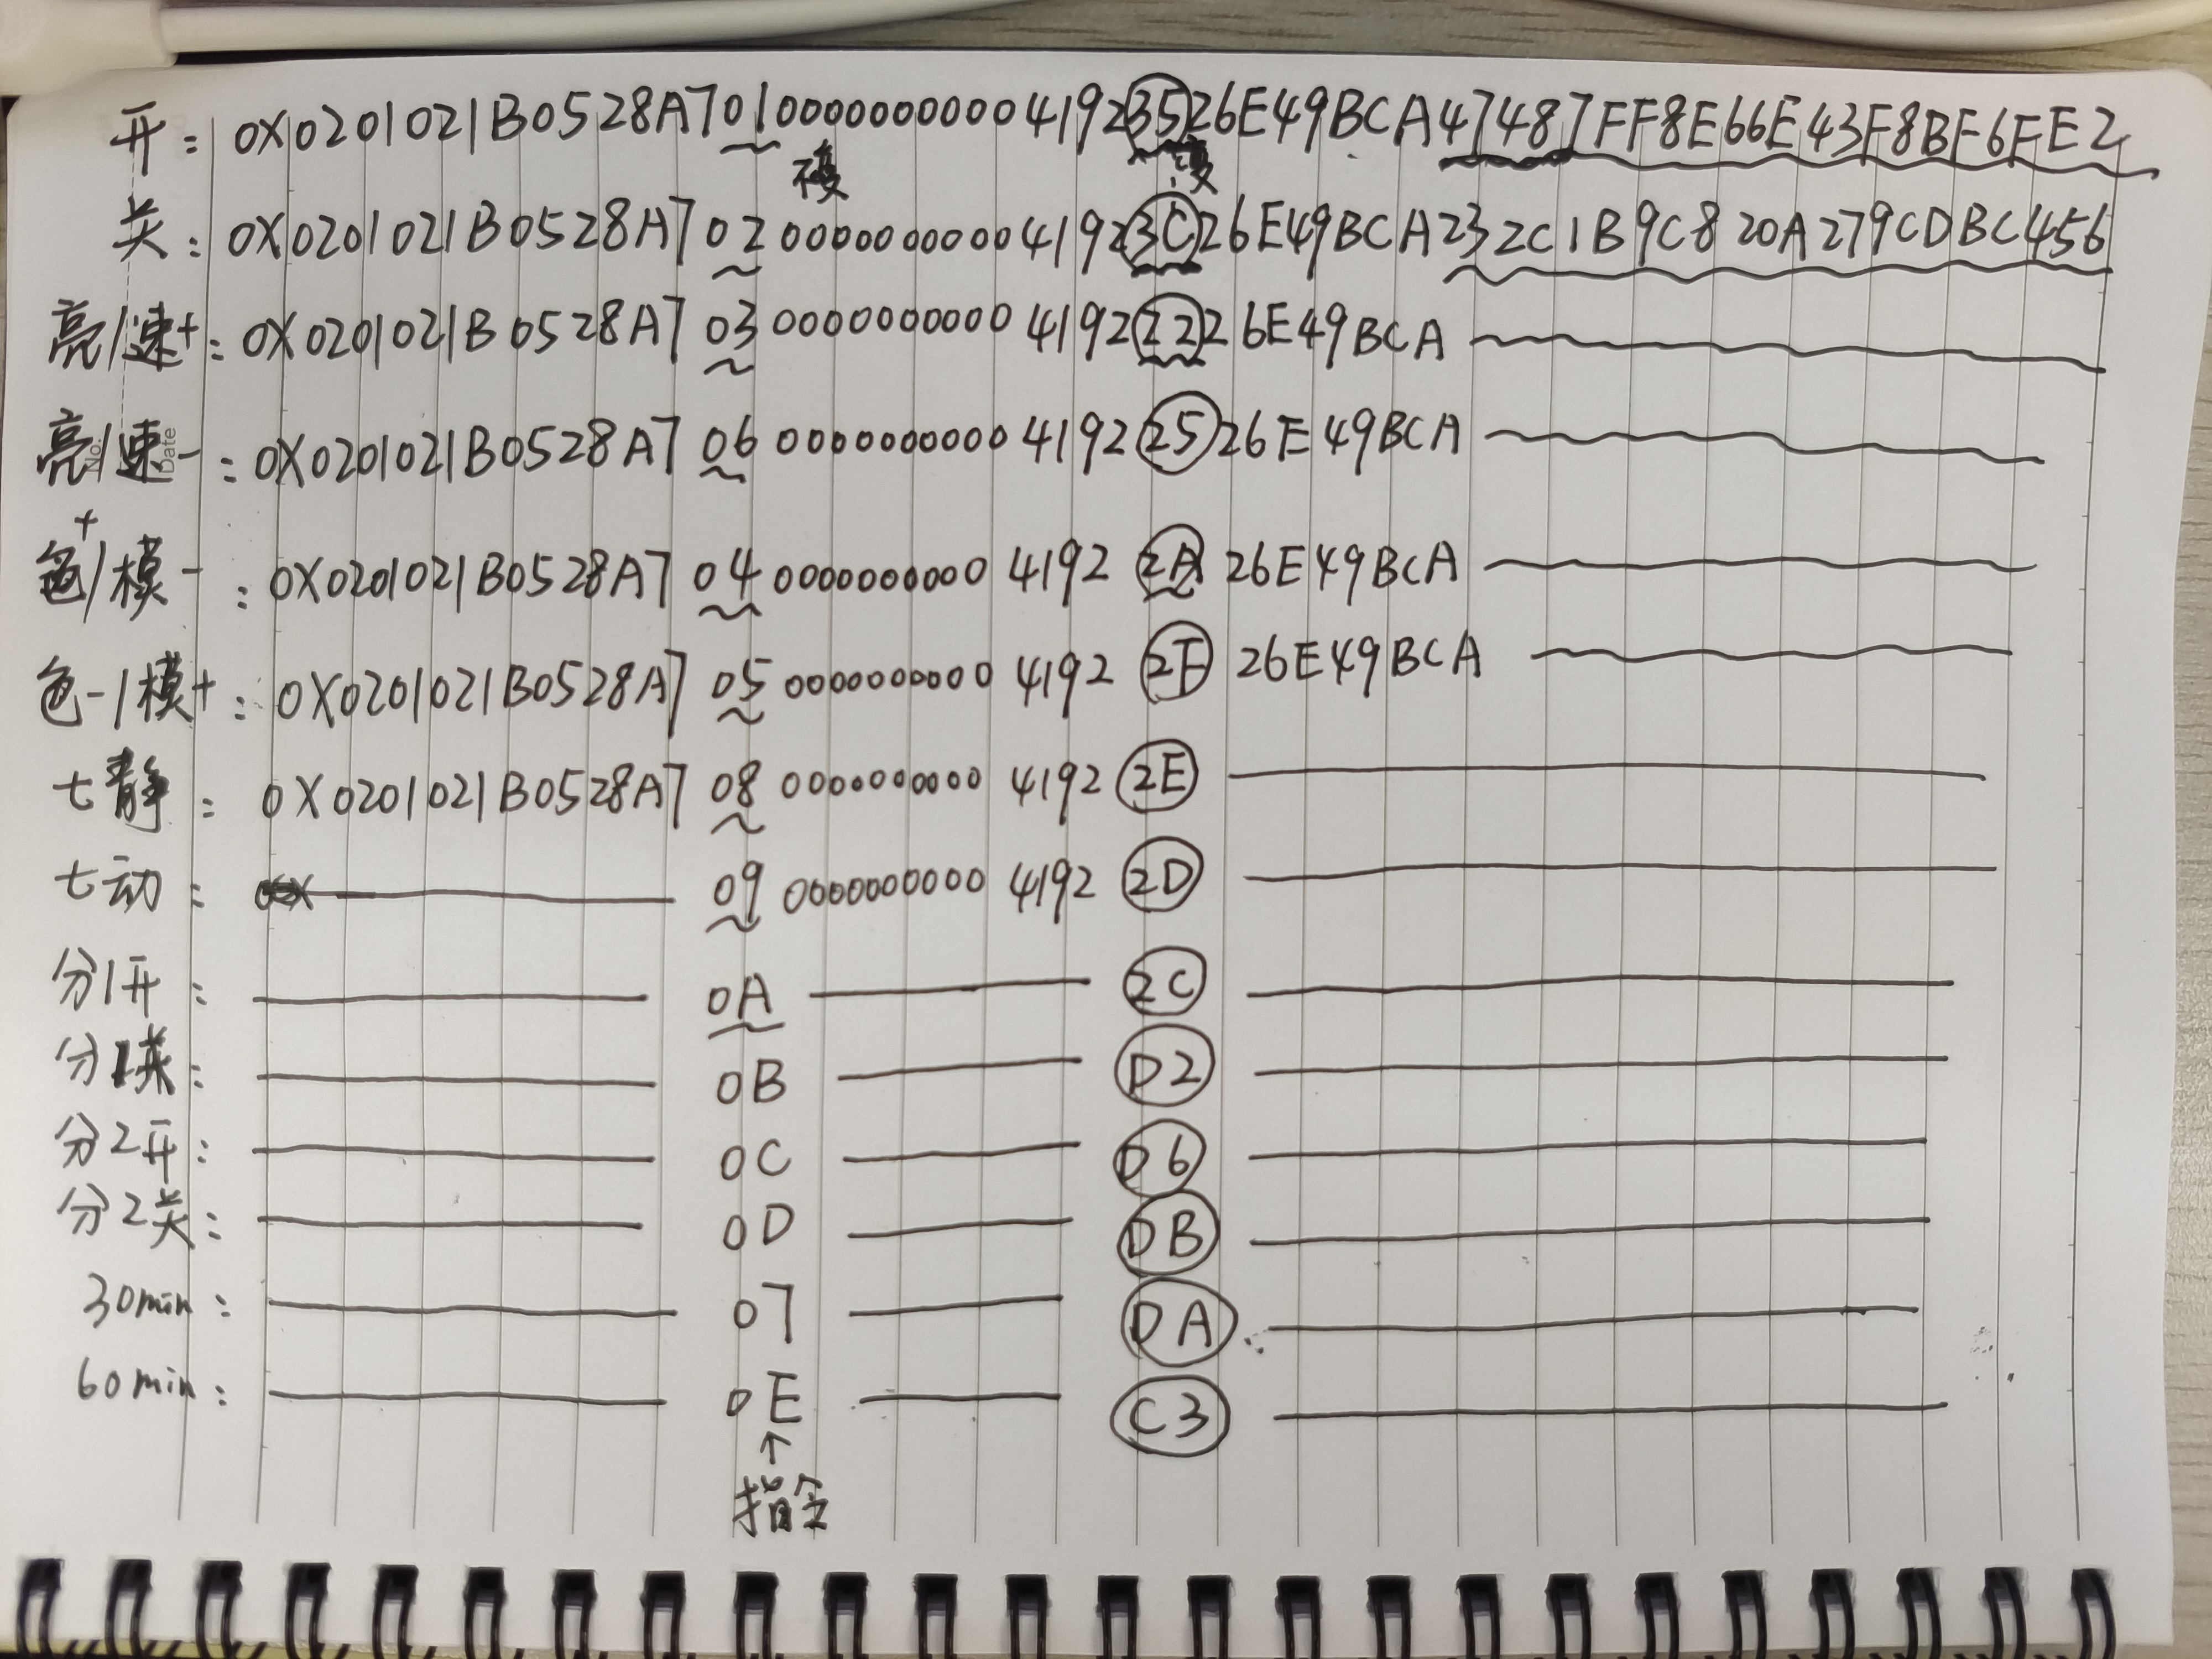 开: 0X0201021B0528A701000000000041923526E49BCA47487FF8E66E43F8BF6FE2
不变 变
关: 0X0201021B0528A702000000000041923C26E49BCA232C1B9C820A279CDBC456
亮/速+: 0X0201021B0528A70300000000004192 22 26E49BCA
No. Date
亮/速-: 0X0201021B0528A7 06 0000000000 4192 25 26E49BCA
色+/模-: 0X0201021B0528A7 04 0000000000 4192 2A 26E49BCA
色-/模+: 0X0201021B0528A7 05 0000000000 4192 2F 26E49BCA
七静: 0X0201021B0528A7 08 0000000000 4192 2E
七动: 09 0000000000 4192 2D
分1开: 0A 2C
分1关: 0B D2
分2开: 0C D6
分2关: 0D DB
30min: 07 DA
60min: 0E C3
↑
指令